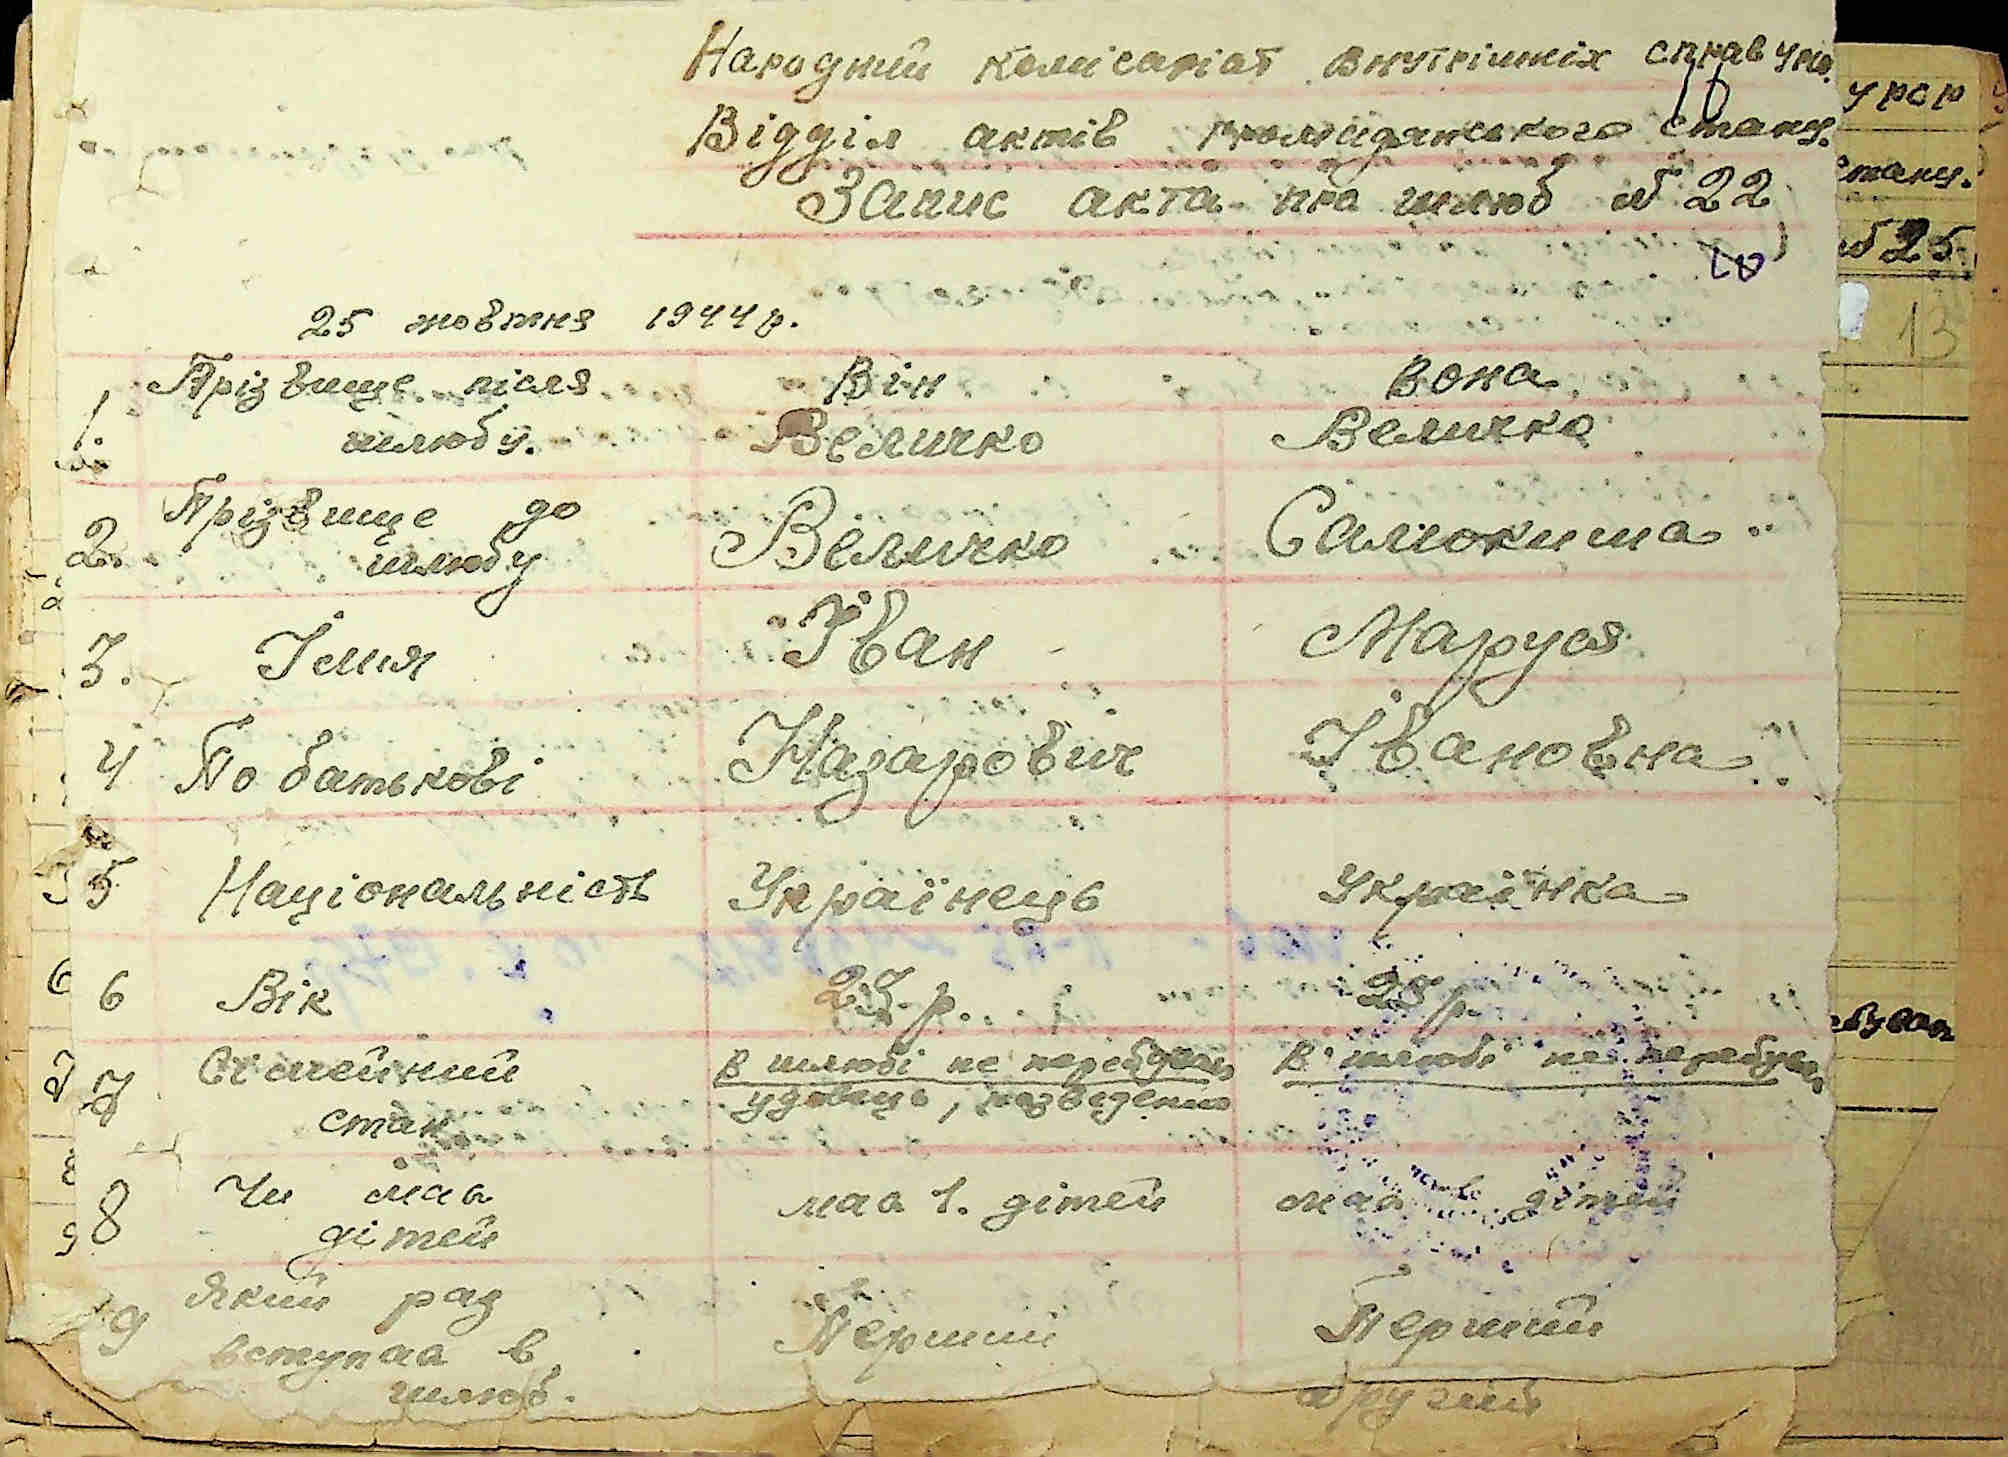 Народний комісаріат внутрішніх справ УРСР
Відділ актів громадянського стану.
Запис акта про шлюб № 22
10
25 жовтня 1944 р.
1. Прізвище після шлюбу. Він Вона
Величко Величко
2. Прізвище до шлюбу Величко
3. Імия Іван Маруся
4 По батькові Назарович Івановна
5 Національність Українець Українка
6 Вік 23 р. 23 р.
7 Сімейний стан в шлюбі не перебуває в шлюбі не перебуває
удовець, розведений
8 Чи має дітей має 1. дітей має дітей
9 Який раз вступає в шлюб. Перший Перший
другий
УРСР
стану.
№ 25
13
6
8
9